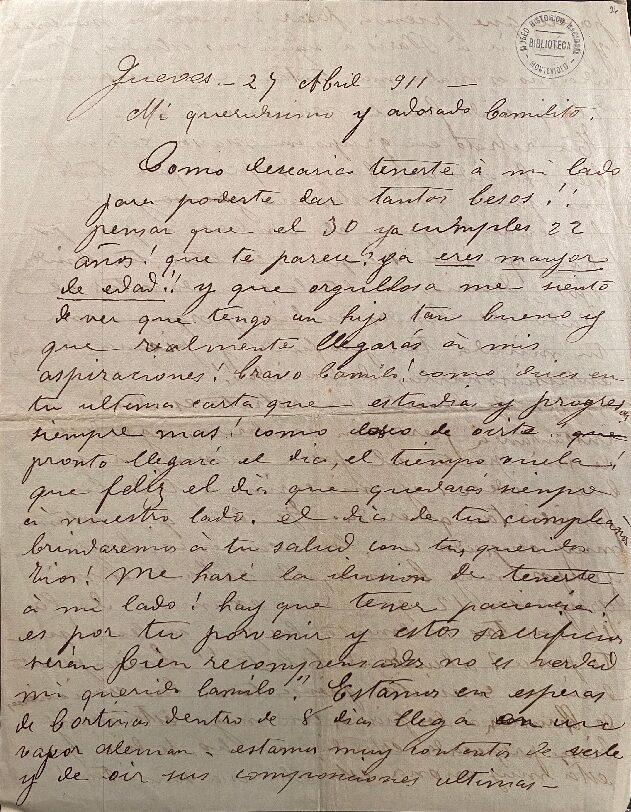 26
MUSEO HISTORICO NACIONAL
BIBLIOTECA
MONTEVIDEO
Jueves - 27 Abril 911 -
Mi queridisimo y adorado Camilito.
Como desearia tenerte à mi lado
para poderte dar tantos besos!!
pensar que el 30 ya cumples 22
años! que te parece? ya eres mayor
de edad!! y que orgullosa me siento
de ver que tengo un hijo tan bueno y
que realmente llegarás à mis
aspiraciones! bravo Camilo! como dices en
tu ultima carta que estudias y progresas
siempre mas! como deseo de oirte. que
pronto llegará el dia, el tiempo vuela!
que feliz el dia que quedarás siempre
à nuestro lado. el dia de tu cumpleaños
brindaremos à tu salud con tus queridos
tios! Me haré la ilusion de tenerte
à mi lado! hay que tener paciencia!
es por tu porvenir y estos sacrificios
serán bien recompensados no es verdad
mi querido Camilo!! Estamos en esperas
de Cortinas dentro de 8 dias llega en un
vapor aleman - estamos muy contentos de verle
y de oir sus composiciones ultimas -